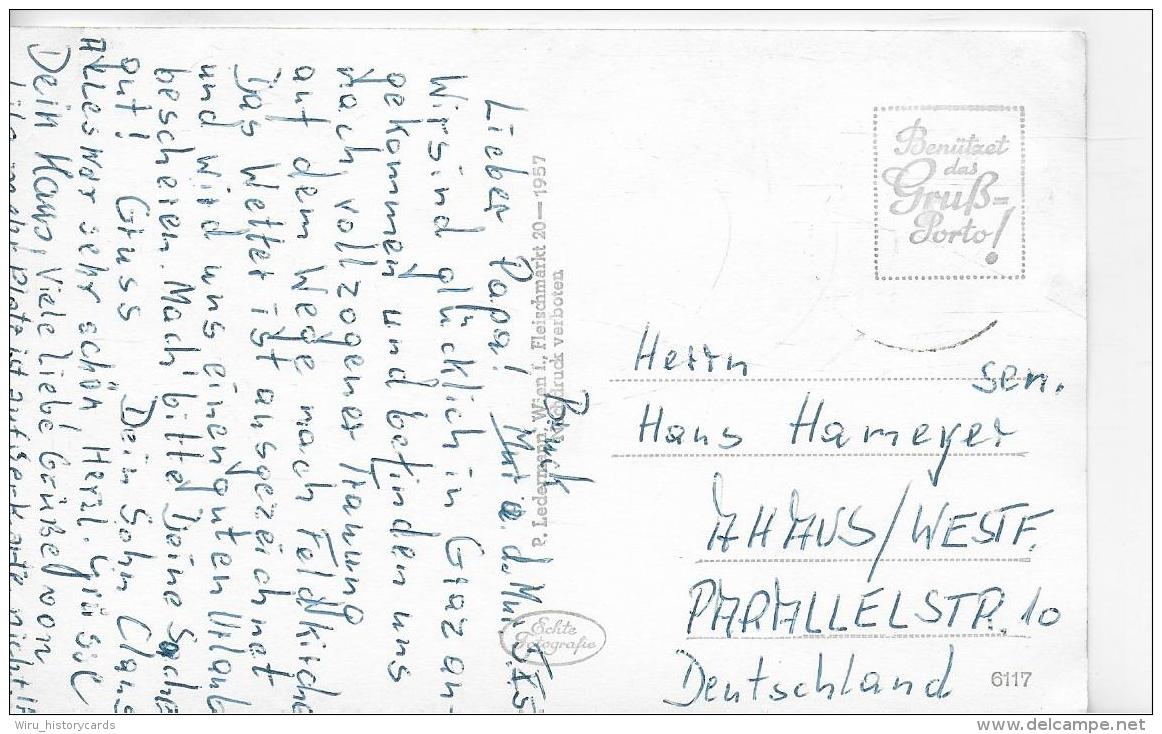 Lieber Papa!
Wir sind glücklich in Graz an-
gekommen und befinden uns
nach vollzogener Trauung
auf dem Wege nach Feldkirchen
Das Wetter ist ausgezeichnet
und wird uns einen guten Urlaub
bescheren. Mach bitte Deine Sache
gut! Gruss Dein Sohn Claus
Alles war sehr schön Herzl. Grüsse
Dein Hans, Viele liebe Grüße von
Platz ist auf der Karte nicht!
P. Ledermann, Wien I., Fleischmarkt 20—1957
Nachdruck verboten
Echte
Fotografie
Benützet
das
Gruß-
Porto!
Herrn
sen.
Hans Hameyer
AHAUS/WESTF.
PARALLELSTR. 10
Deutschland
6117
Wiru_historycards
www.delcampe.net